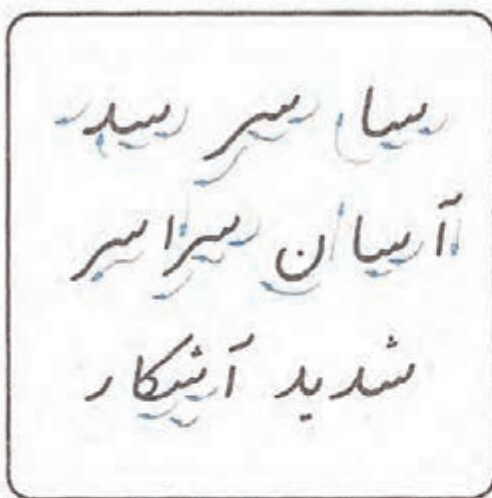 سا سر سد
آسان سراسر
شدید آشکار